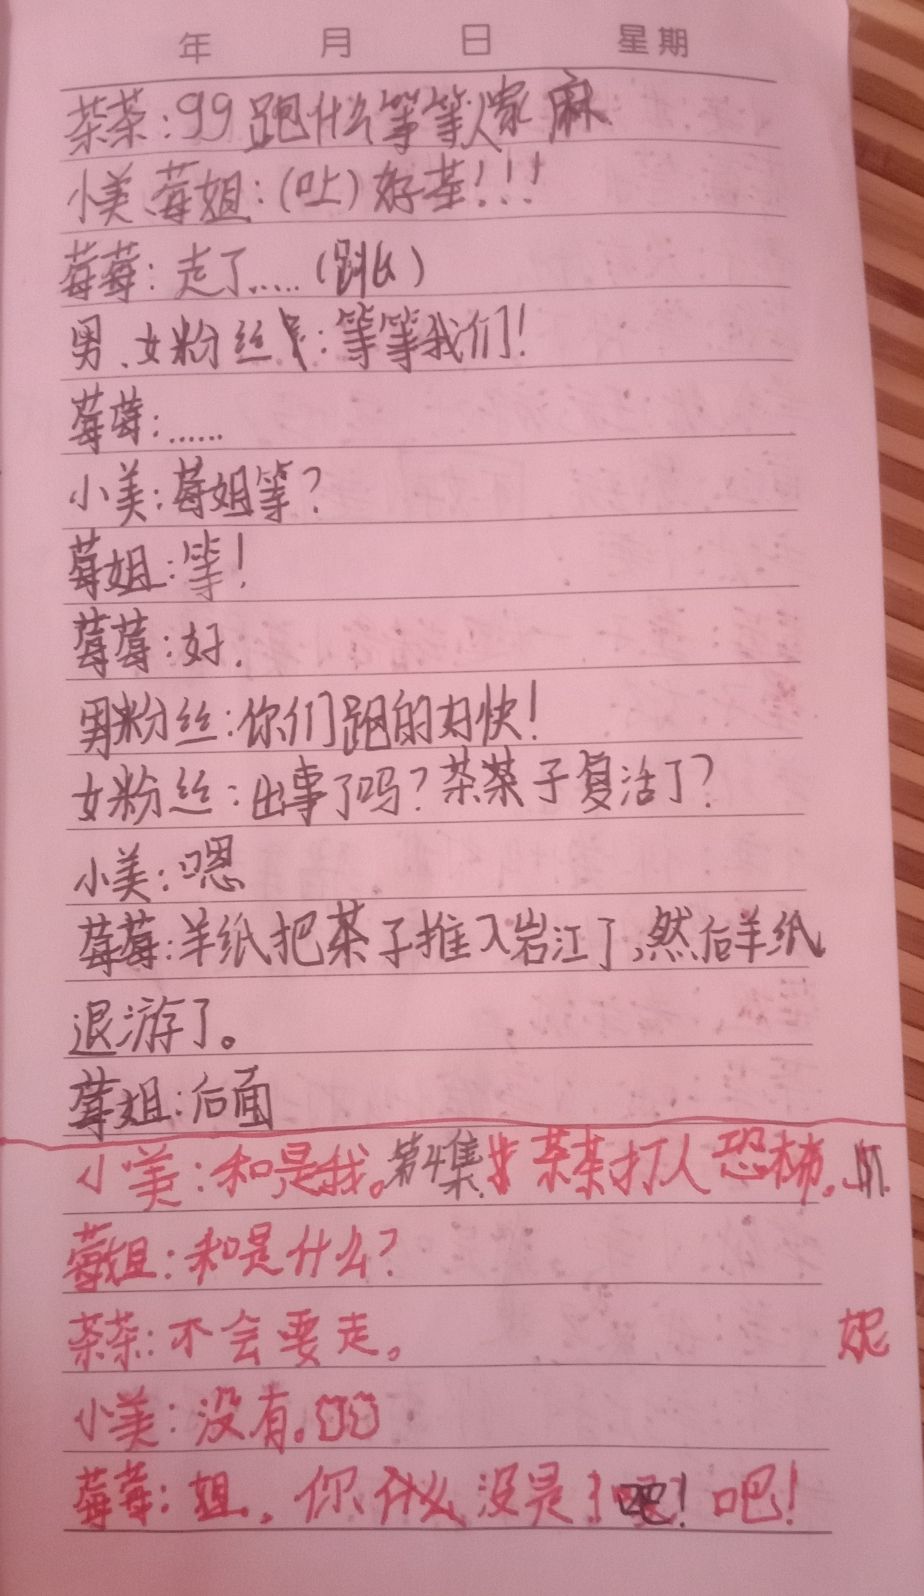 年 月 日 星期
茶茶:99跑什么等等人家麻
小美、莓姐:(吐)好茶!!!
莓莓:走了.....(跳)
男、女粉丝:等等我们!
莓莓:......
小美:莓姐等?
莓姐:等!
莓莓:好.
男粉丝:你们跑的好快!
女粉丝:出事了吗?茶茶子复活了?
小美:嗯
莓莓:羊纸把茶子推入岩江了,然后羊纸
退游了。
莓姐:后面
小美:和是我。第4集 茶茶打人恐怖。
莓姐:和是什么?
茶茶:不会要走。
妮
小美:没有。
莓莓:姐,你什么没是了吧!吧!